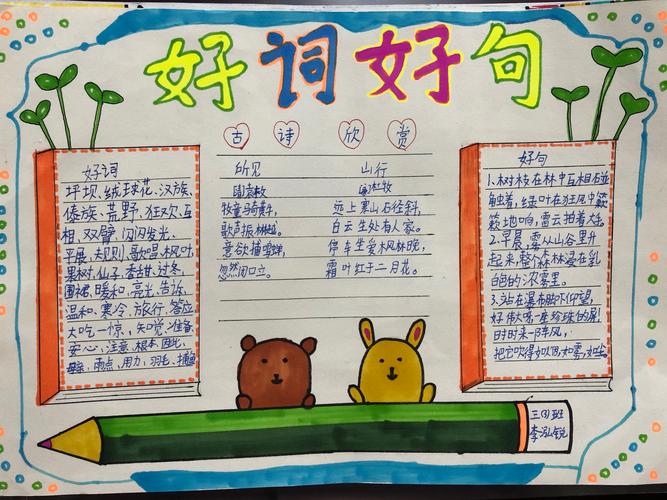 好词好句
古诗欣赏
好词
坪坝、绒球花、汉族、
傣族、荒野、狂欢、互
相、双臂、闪闪发光、
平展、规则、歌唱、枫叶、
果树、仙子、香甜、过冬、
围裙、暖和、亮光、告诉、
温和、寒冷、旅行、答应、
大吃一惊、知觉、准备、
安心、注意、根本、因此、
雨点、用力、羽毛、
所见
牧童骑黄牛,
歌声振林樾。
意欲捕鸣蝉,
忽然闭口立。
山行
杜牧
远上寒山石径斜,
白云生处有人家。
停车坐爱枫林晚,
霜叶红于二月花。
好句
1.树枝在林中互相
触着,红叶在狂风中簌
簌地响,雷云拍着大
2.早晨,雾从山谷里升
起来,整个森林浸在乳
白色的浓雾里。
3.站在瀑布脚下仰望,
好伟大呀!一座珍珠的屏!
时时来一阵风,
把它吹得如烟,如雾,如尘。
三(1)班
李泓锐